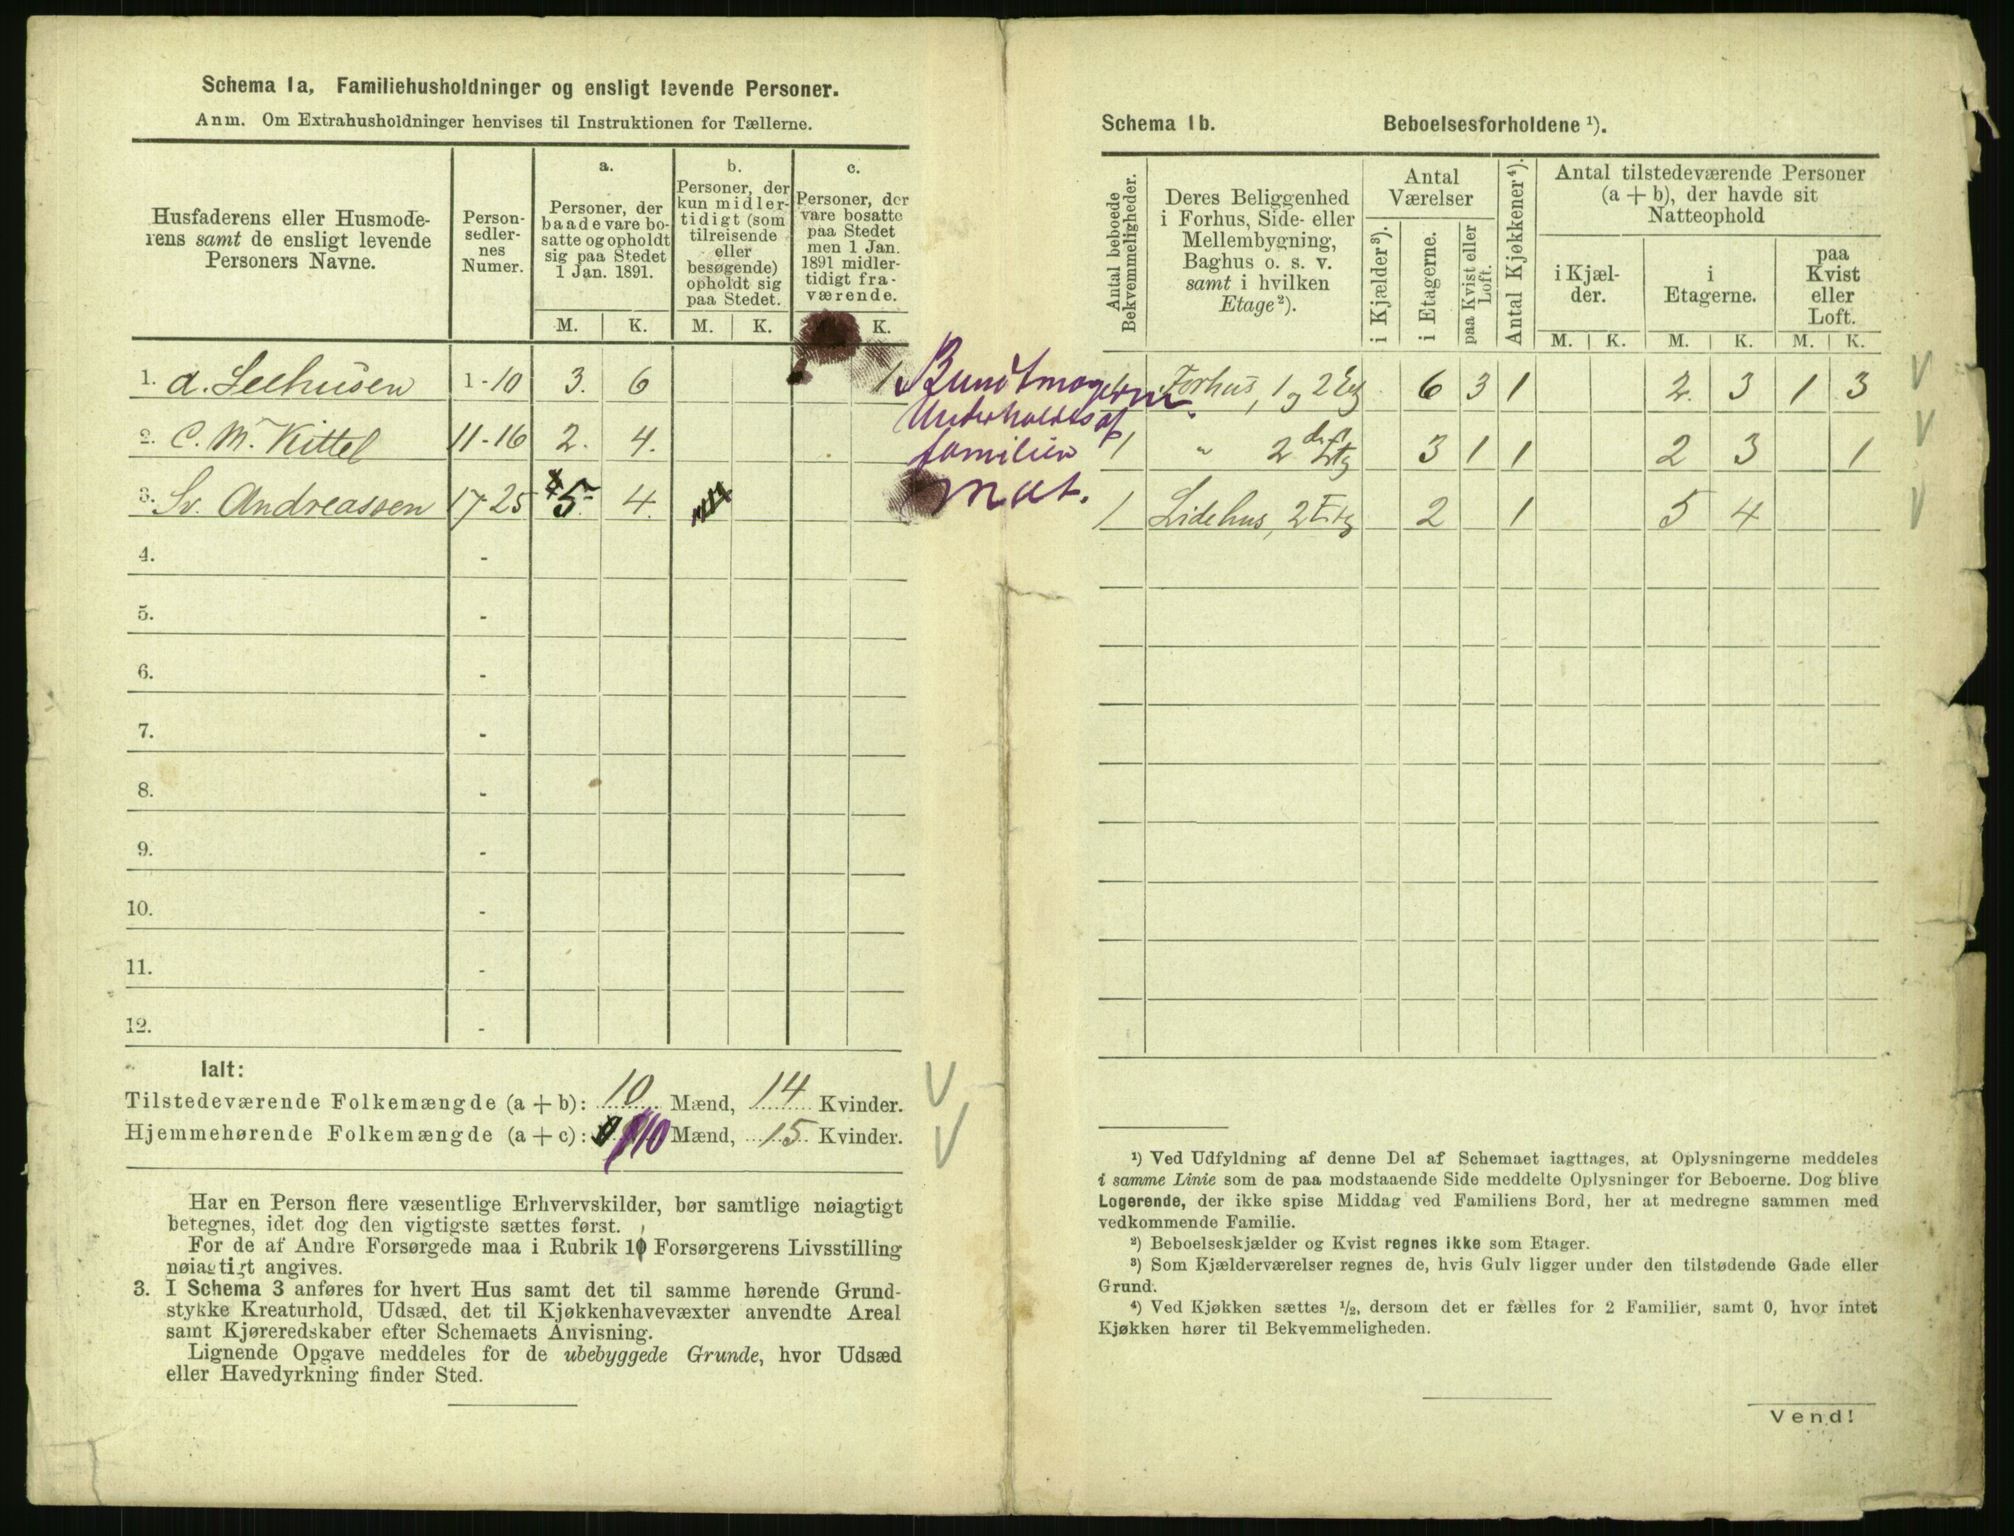 Schema 1a, Familiehusholdninger og ensligt levende Personer.
Anm. Om Extrahusholdninger henvises til Instruktionen for Tællerne.
Husfaderens eller Husmode-
rens samt de ensligt levende
Personers Navne.
Person-
sedler-
nes
Numer.
a.
Personer, der
baade vare bo-
satte og opholdt
sig paa Stedet
1 Jan. 1891.
b.
Personer, der
kun midler-
tidigt (som
tilreisende
eller
besøgende)
opholdt sig
paa Stedet.
c.
Personer, der
vare bosatte
paa Stedet
men 1 Jan.
1891 midler-
tidigt fra-
værende.
M. K. M. K. K.
1. A. Seehusen 1-10 3. 6 1
2. C. M. Kittel 11-16 2. 4.
3. Sv. Andreassen 17-25 5 4.
4. -
5. -
6. -
7. -
8. -
9. -
10. -
11. -
12. -
Buntmagerne
Underholdes af
familien
mat.
Ialt:
Tilstedeværende Folkemængde (a + b): 10 Mænd, 14 Kvinder.
Hjemmehørende Folkemængde (a + c): 10 Mænd, 15 Kvinder.
Har en Person flere væsentlige Erhvervskilder, bør samtlige nøiagtigt
betegnes, idet dog den vigtigste sættes først.
For de af Andre Forsørgede maa i Rubrik 10 Forsørgerens Livsstilling
nøiagtigt angives.
3. I Schema 3 anføres for hvert Hus samt det til samme hørende Grund-
stykke Kreaturhold, Udsæd, det til Kjøkkenhavevæxter anvendte Areal
samt Kjøreredskaber efter Schemaets Anvisning.
Lignende Opgave meddeles for de ubebyggede Grunde, hvor Udsæd
eller Havedyrkning finder Sted.
Schema 1b. Beboelsesforholdene ¹).
Antal beboede
Bekvemmeligheder.
Deres Beliggenhed
i Forhus, Side- eller
Mellembygning,
Baghus o. s. v.
samt i hvilken
Etage²).
Antal
Værelser
i Kjælder³).
i Etagerne.
paa Kvist eller
Loft.
Antal Kjøkkener⁴).
Antal tilstedeværende Personer
(a + b), der havde sit
Natteophold
i Kjæl-
der.
i
Etagerne.
paa
Kvist
eller
Loft.
M. K. M. K. M. K.
Forhus, 1 og 2 Etg 6 3 1 2 3 1 3
1 " 2 Etg 3 1 1 2 3 1
1 Sidehus, 2 Etg 2 1 5 4
¹) Ved Udfyldning af denne Del af Schemaet iagttages, at Oplysningerne meddeles
i samme Linie som de paa modstaaende Side meddelte Oplysninger for Beboerne. Dog blive
Logerende, der ikke spise Middag ved Familiens Bord, her at medregne sammen med
vedkommende Familie.
²) Beboelseskjælder og Kvist regnes ikke som Etager.
³) Som Kjælderværelser regnes de, hvis Gulv ligger under den tilstødende Gade eller
Grund.
⁴) Ved Kjøkken sættes ½, dersom det er fælles for 2 Familier, samt 0, hvor intet
Kjøkken hører til Bekvemmeligheden.
Vend!